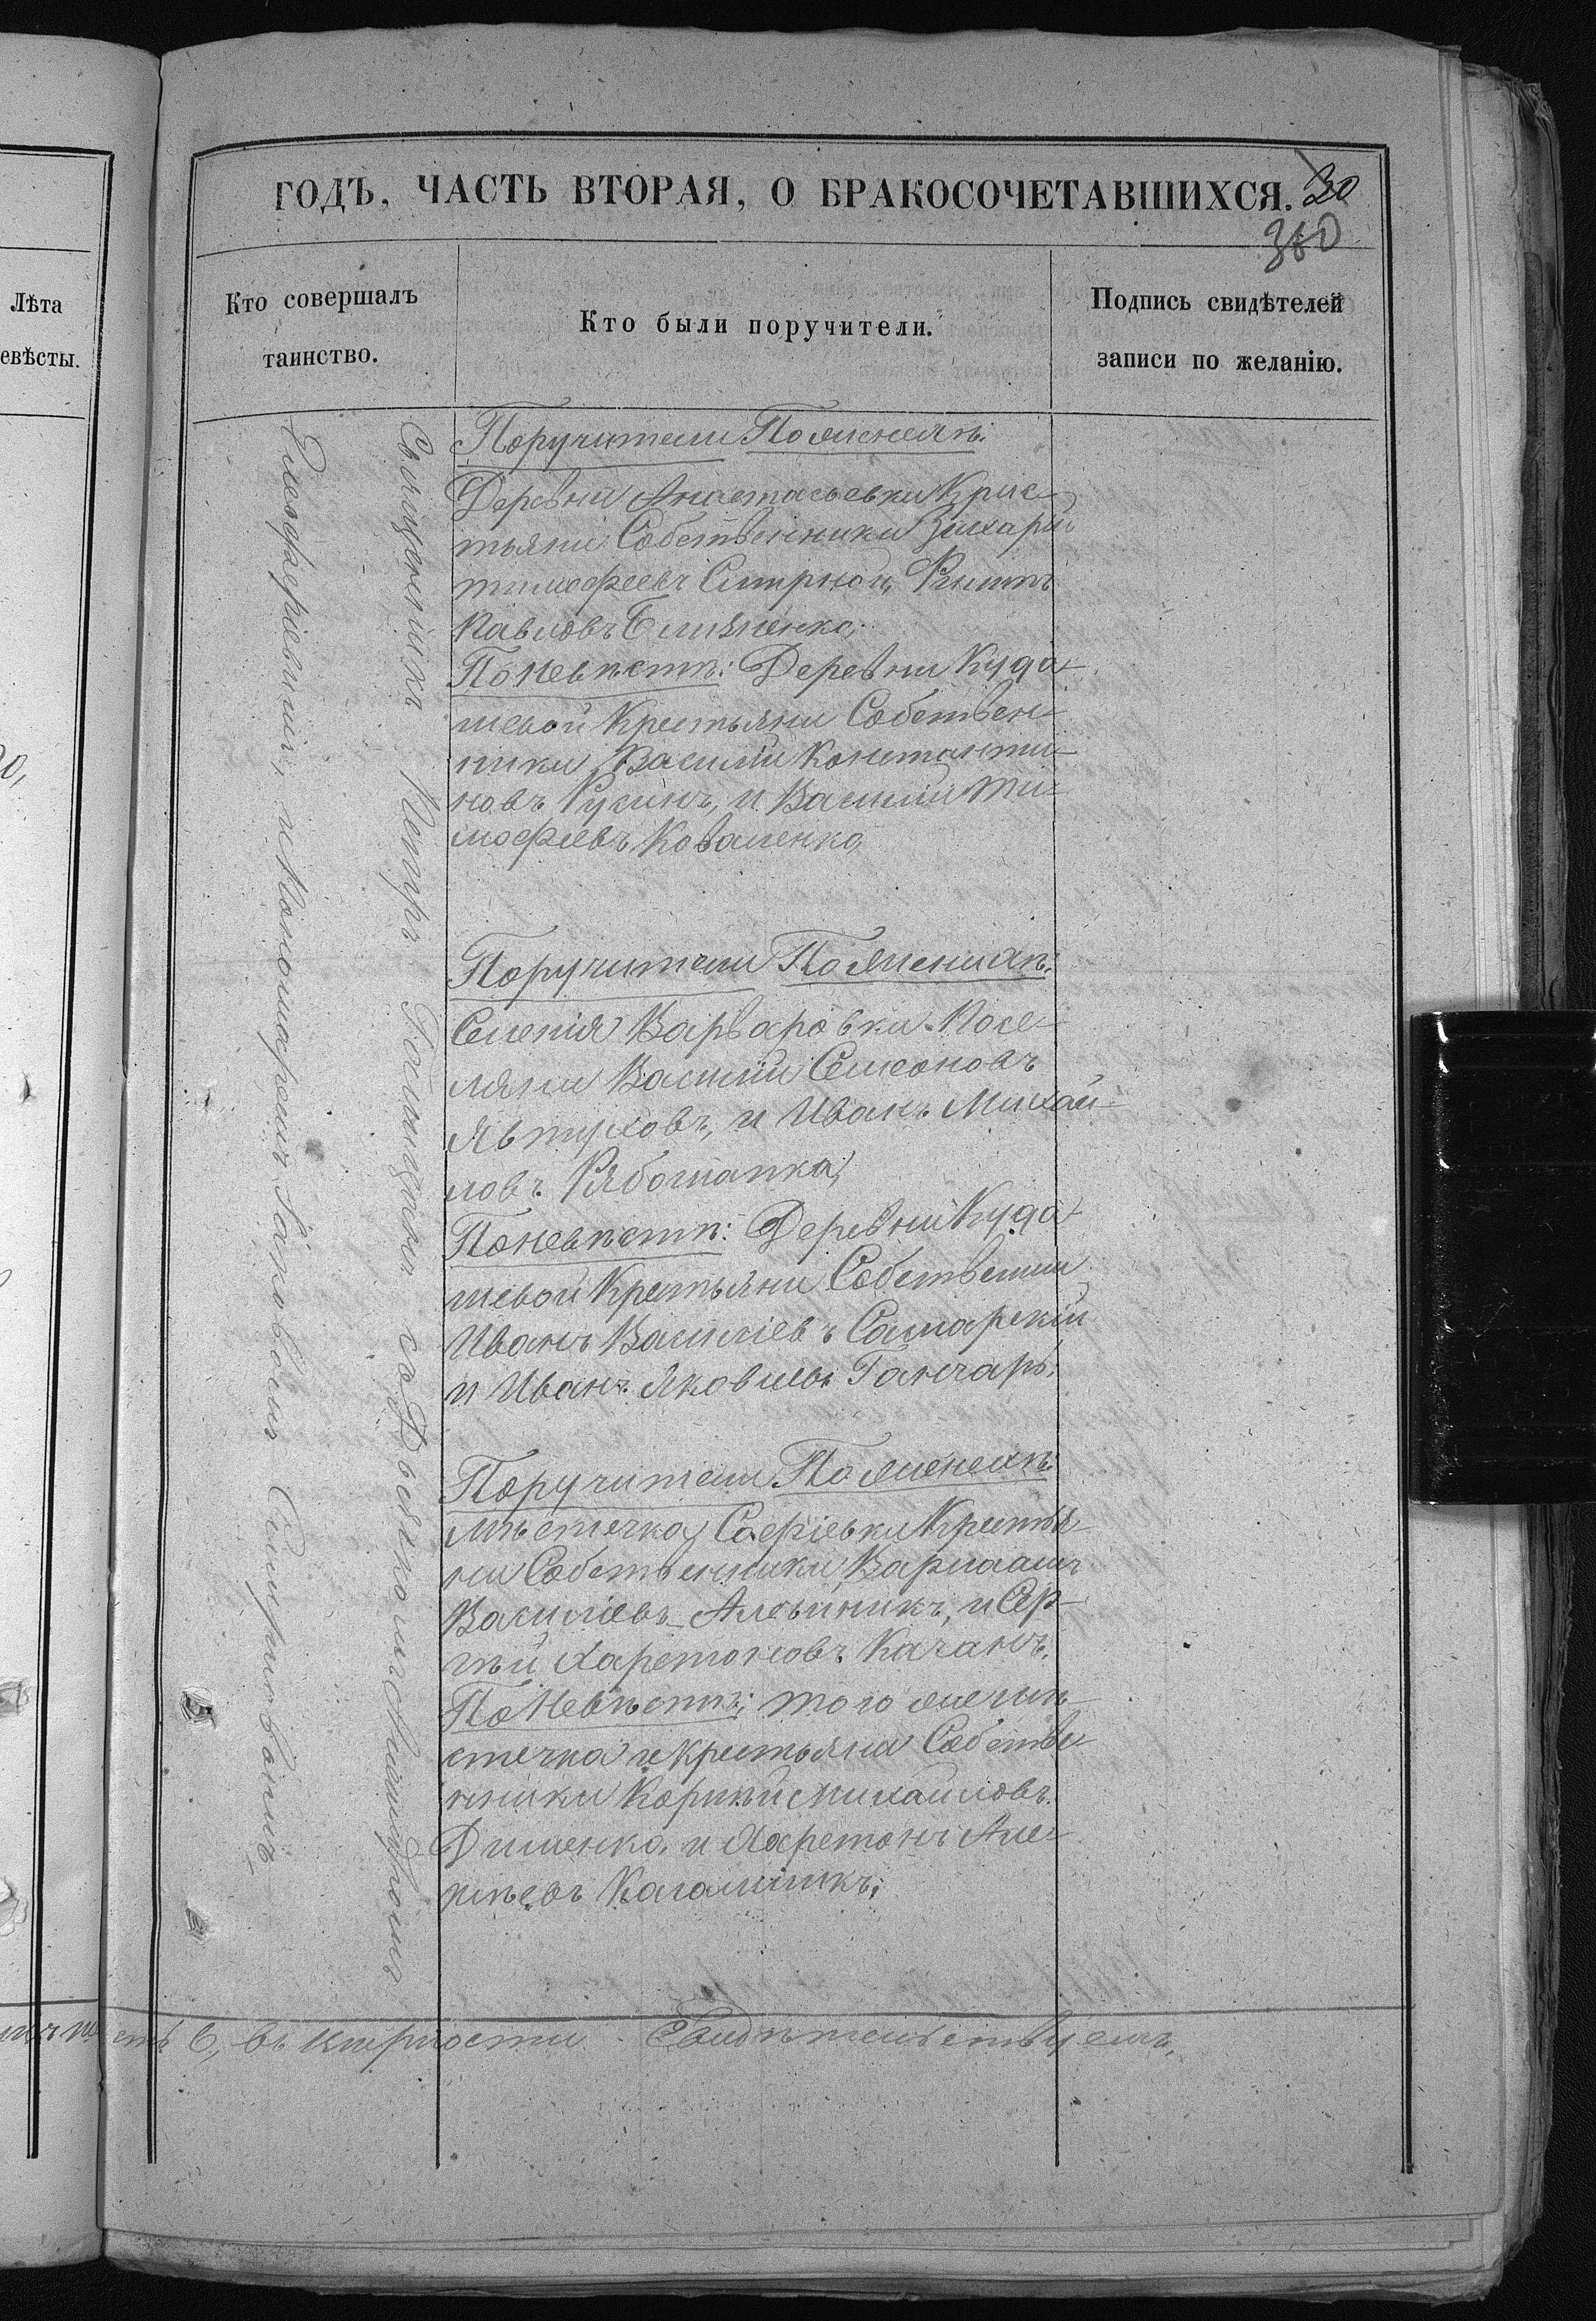 ГОДЪ, ЧАСТЬ ВТОРАЯ, О БРАКОСОЧЕТАВШИХСЯ.
30
380
Лѣта
евѣсты.
Кто совершалъ
таинство.
Кто были поручители.
Подпись свидѣтелей
записи по желанію.
Священникъ Петръ съ Дьякономъ
Елевферіевымъ, и Пономаремъ Смирновымъ
Поручители По женихѣ:
Деревни Анастасьевки Крис-
тьяни Собственники Захарій
тимофеевъ Смирной,
Павловъ
По невѣстѣ: Деревни Куда-
шевой Крестьяни Собствен-
ники Василій Константи-
новъ Русинъ, и Василій Ти-
мофѣевъ Коваленко
Поручители По женихѣ:
Селенія Варваровки Посе-
ляни Василій Семеоновъ
Явтуховъ, и Иванъ Михай-
ловъ Рябошапка,
По невѣстѣ: Деревни Куда-
шевой Крестьяни Собственни
Иванъ Василіевъ Самарскій
и Иванъ Яковлевъ Ганчаръ;
Поручители По женихѣ:
мѣстечка Софіевки Крестья-
ни Собственники Варлаамъ
Василіевъ Алейникъ, и Сер-
гѣй Харетоновъ Качанъ,
По Невѣстѣ: того же мѣ-
стечка Крестьяна Собстве-
нники Корнѣй Михайловъ
Дименко и Харетонъ Але-
ксѣевъ
6, въ вѣрности Свидѣтельствуемъ,